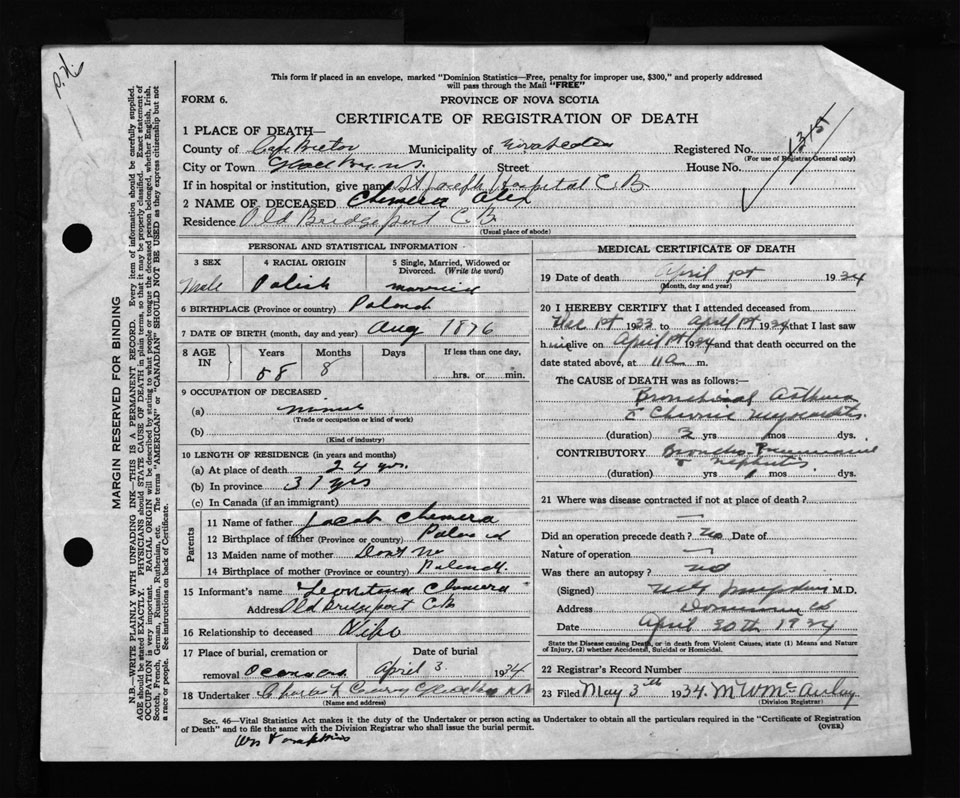 This form if placed in an envelope, marked "Dominion Statistics—Free, penalty for improper use, $300," and properly addressed
will pass through the Mail "FREE"
FORM 6.
PROVINCE OF NOVA SCOTIA
CERTIFICATE OF REGISTRATION OF DEATH
1 PLACE OF DEATH—
County of Cape Breton Municipality of Registered No.
(For use of Registrar General only)
City or Town Glace Bay N.S. Street House No.
If in hospital or institution, give name St Joseph Hospital C.B
2 NAME OF DECEASED Chemera Alex
Residence Old Bridgeport C.B.
(Usual place of abode)
PERSONAL AND STATISTICAL INFORMATION
3 SEX 4 RACIAL ORIGIN 5 Single, Married, Widowed or Divorced. (Write the word)
Male Polish married
6 BIRTHPLACE (Province or country) Poland
7 DATE OF BIRTH (month, day and year) Aug 1876
8 AGE IN Years Months Days If less than one day,
58 8 hrs. or min.
9 OCCUPATION OF DECEASED
(a) miner
(Trade or occupation or kind of work)
(b)
(Kind of industry)
10 LENGTH OF RESIDENCE (in years and months)
(a) At place of death 24 yrs.
(b) In province 31 yrs
(c) In Canada (if an immigrant)
Parents
11 Name of father Jacob Chemera
12 Birthplace of father (Province or country) Poland
13 Maiden name of mother Dont no
14 Birthplace of mother (Province or country) Poland
15 Informant's name Leontina Chemera
Address Old Bridgeport CB
16 Relationship to deceased Wife
17 Place of burial, cremation or removal Date of burial
April 3. 1934
18 Undertaker
(Name and address)
MEDICAL CERTIFICATE OF DEATH
19 Date of death April 1st 1934
(Month, day and year)
20 I HEREBY CERTIFY that I attended deceased from
1st 1933 to April 1st 1934 that I last saw
him alive on April 1st 1934 and that death occurred on the
date stated above, at 11 a m.
The CAUSE OF DEATH was as follows:—
Bronchical Asthma
c Chronic Myocarditis.
(duration) 3 yrs mos dys.
CONTRIBUTORY Broncho-Pneumonia
c Nephritis
(duration) yrs mos dys.
21 Where was disease contracted if not at place of death?
Did an operation precede death? no Date of
Nature of operation
Was there an autopsy? no
(Signed) M.D.
Address Dominion CB
Date April 30th 1934
State the Disease causing Death, or in death from Violent Causes, state (1) Means and Nature
of Injury, (2) whether Accidental, Suicidal or Homicidal.
22 Registrar's Record Number
23 Filed May 3th 1934. M W McAulay
(Division Registrar)
Sec. 46—Vital Statistics Act makes it the duty of the Undertaker or person acting as Undertaker to obtain all the particulars required in the "Certificate of Registration
of Death" and to file the same with the Division Registrar who shall issue the burial permit.
(OVER)
MARGIN RESERVED FOR BINDING
N.B.—WRITE PLAINLY WITH UNFADING INK—THIS IS A PERMANENT RECORD. Every item of information should be carefully supplied.
AGE should be stated EXACTLY. PHYSICIANS should STATE CAUSE OF DEATH in plain terms, so that it may be properly classified. Exact statement of
OCCUPATION is very important. RACIAL ORIGIN will be described by stating to what people or tongue the deceased person belonged, whether English, Irish,
Scotch, French, German, Russian, Ruthenian, etc. The terms "AMERICAN" or "CANADIAN" SHOULD NOT BE USED as they express citizenship but not
a race or people. See instructions on back of Certificate.